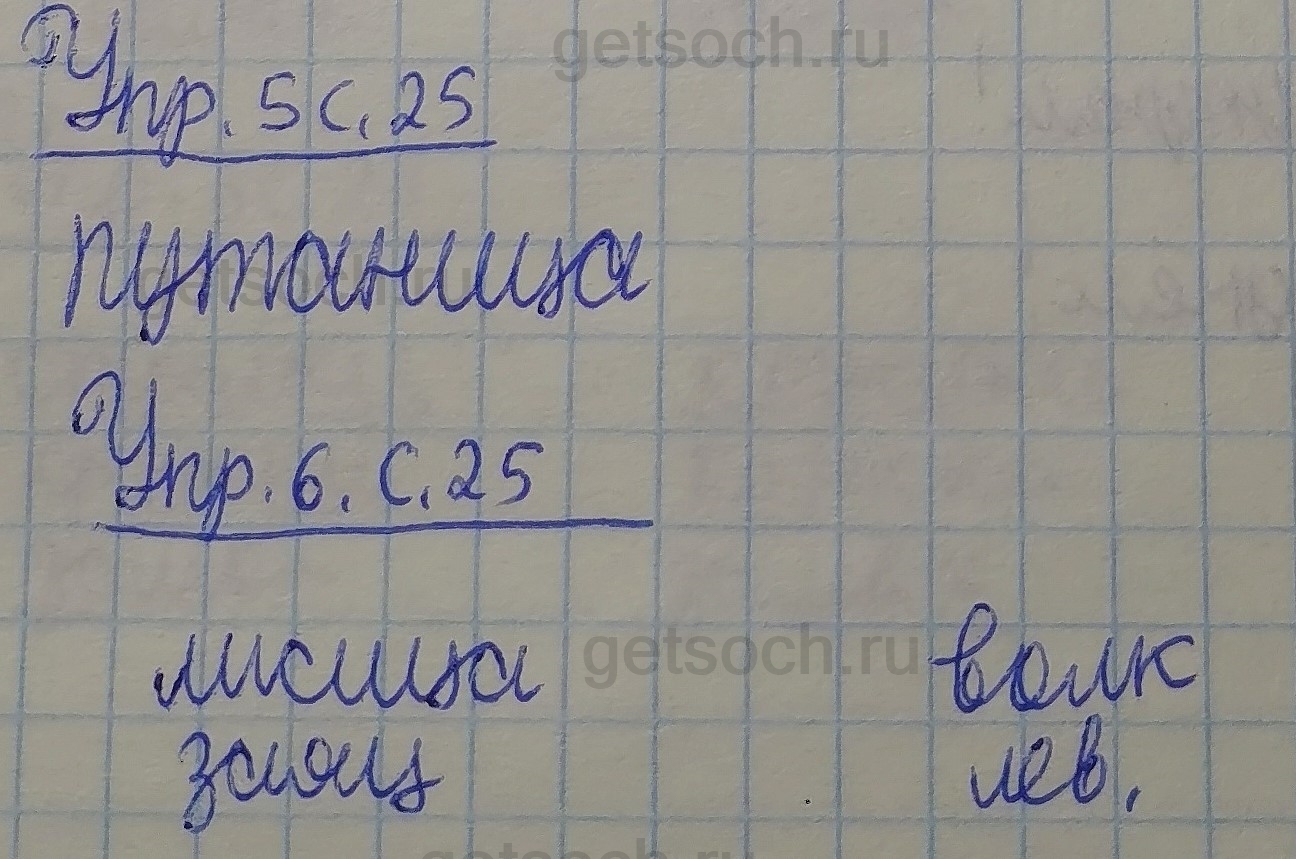 getsoch.ru
Упр. 5 с. 25
путаница
getsoch.ru
Упр. 6. с. 25
лисица волк
getsoch.ru
заяц лев.
getsoch.ru